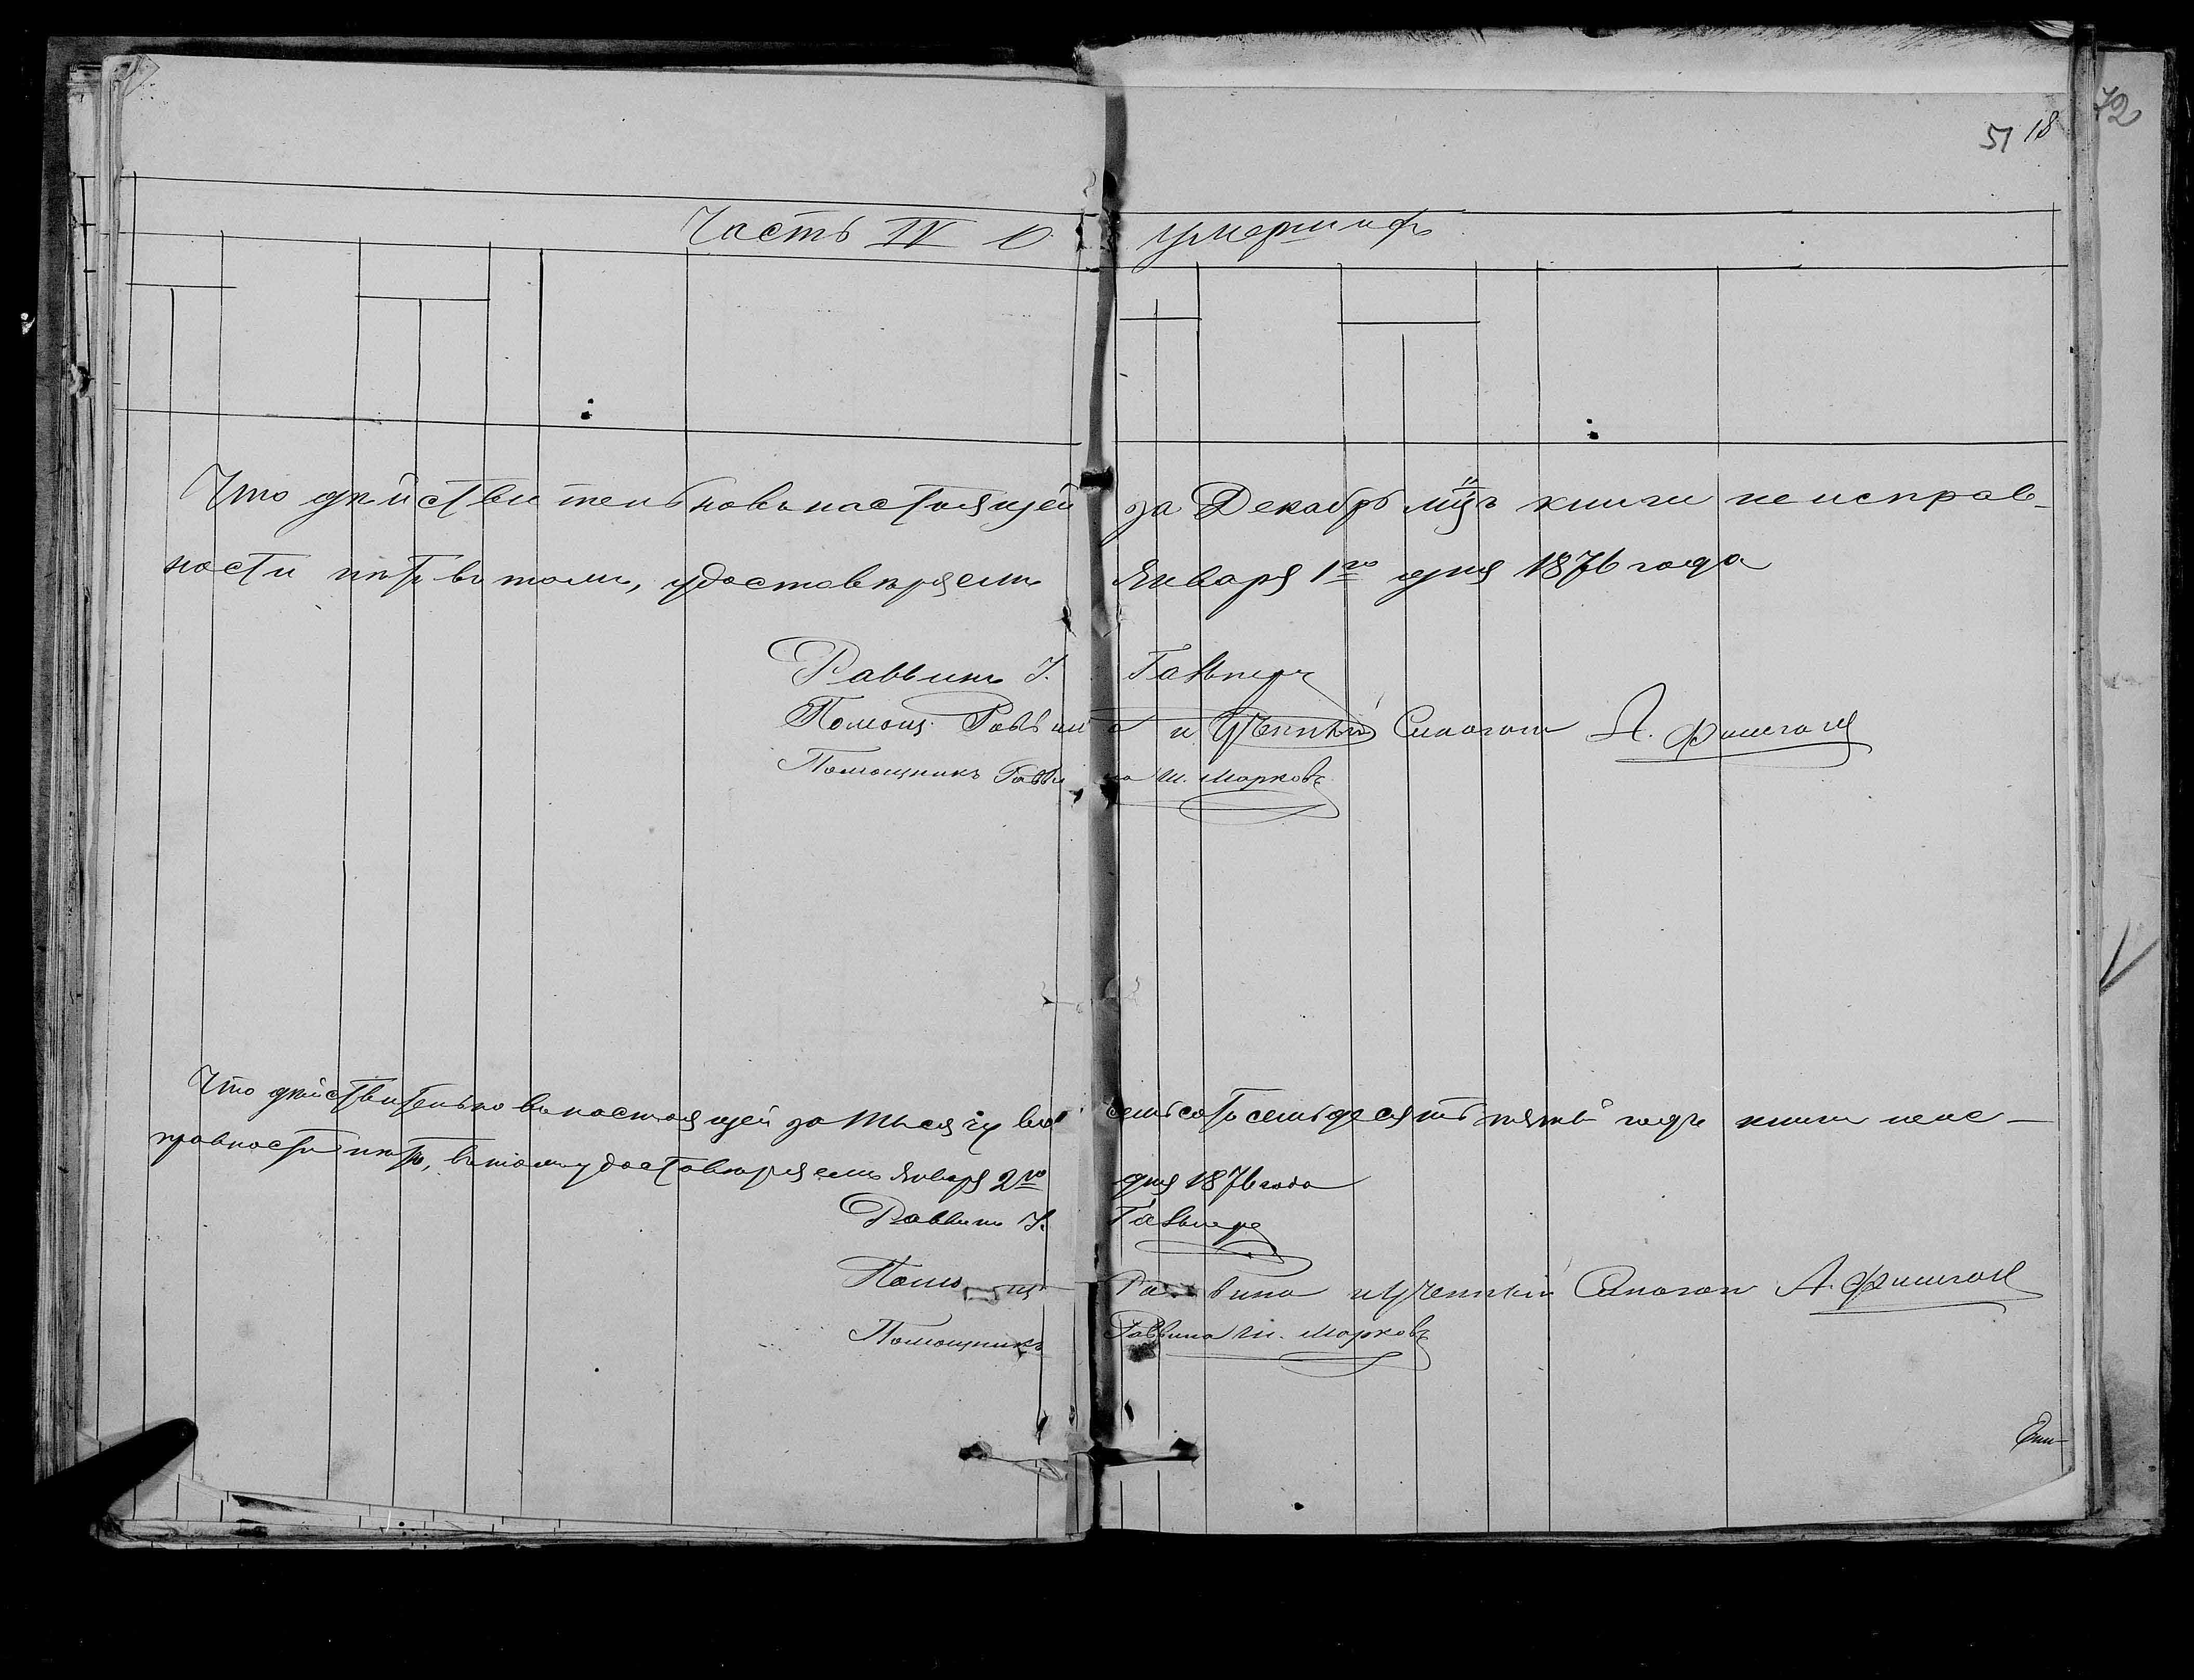 72
51 18
Часть IV О умершихъ
Что дѣйствительно въ настоящей за Декабрь мцъ книги неисправ-
ности нѣтъ въ томъ, удостовѣряемъ Января 1го дня 1876 года
Раввинъ І. Гальперн
Помощ. Раввина и Ученый Синагоги А. Фишгоп
Помощникъ Раввина Ш. Марковъ
Что дѣйствительно въ настоящей за тысячу восемьсотъ семьдесятъ пятый годъ книги неис-
правности нѣтъ, въ томъ удостовѣряемъ Января 2го дня 1876 года
Раввинъ І. Гальперн
Помощ Раввина и Ученый Синагоги А. Фишгоп
Помощникъ Раввина Ш. Марковъ